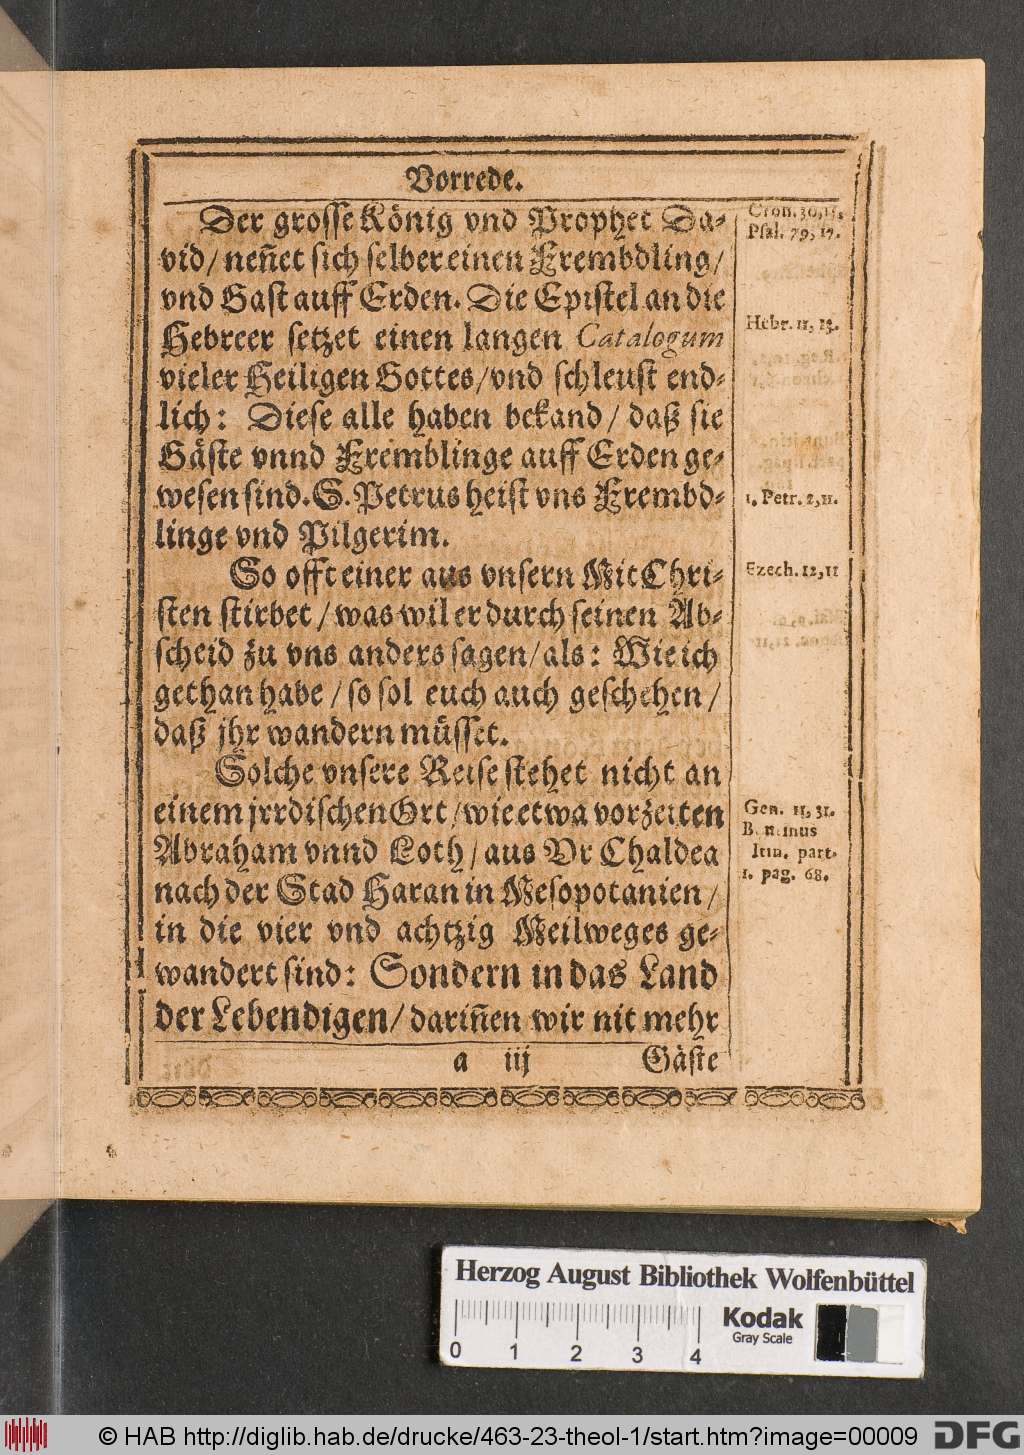 Vorrede.
Der grosse König vnd Prophet Da-
vid/ nen̄et sich selber einen Frembdling/
vnd Gast auff Erden. Die Epistel an die
Hebreer setzet einen langen Catalogum
vieler Heiligen Gottes/ vnd schleust end-
lich: Diese alle haben bekand/ daß sie
Gäste vnnd Fremblinge auff Erden ge-
wesen sind. S. Petrus heist vns Frembd-
linge vnd Pilgerim.
So offt einer aus vnsern Mit Chri-
sten stirbet/ was wil er durch seinen Ab-
scheid zu vns anders sagen/ als: Wie ich
gethan habe/ so sol euch auch geschehen/
daß jhr wandern müsset.
Solche vnsere Reise stehet nicht an
einem jrrdischen Ort/ wie etwa vorzeiten
Abraham vnnd Loth/ aus Vr Chaldea
nach der Stad Haran in Mesopotanien/
in die vier vnd achtzig Meilweges ge-
wandert sind: Sondern in das Land
der Lebendigen/ darin̄en wir nit mehr
a iij Gäste
Cron. 30, 15.
Psal. 79, 17.
Hebr. 11, 13.
1. Petr. 2, 11.
Ezech. 12, 11
Gen. 11, 31.
Itin. part.
1. pag. 68.
Herzog August Bibliothek Wolfenbüttel
0 1 2 3 4
Kodak
Gray Scale
© HAB http://diglib.hab.de/drucke/463-23-theol-1/start.htm?image=00009
DFG